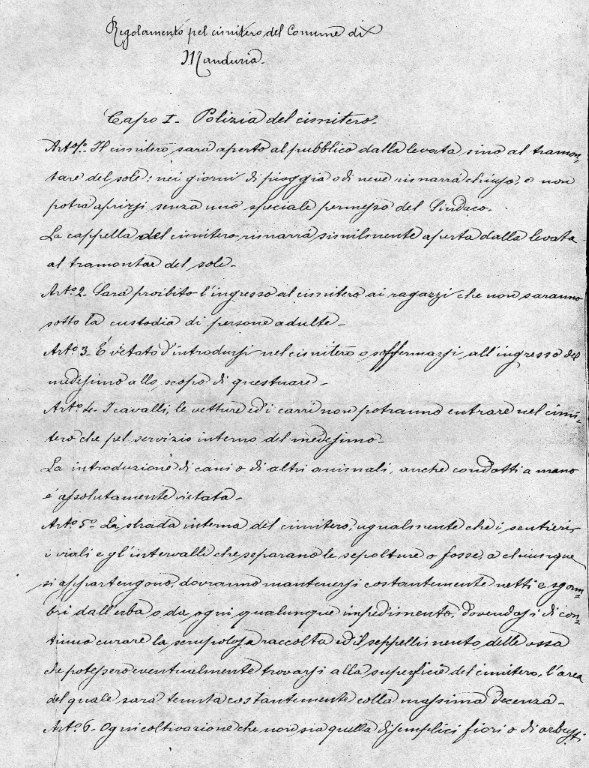 Regolamento pel cimitero del Comune di
Manduria.
Capo I. Polizia del cimitero.
Art.º 1.º Il cimitero sarà aperto al pubblico dalla levata sino al tramon-
tare del sole: nei giorni di pioggia o di neve rimarrà chiuso, e non
potrà aprirsi senza uno speciale permesso del Sindaco.
La cappella del cimitero, rimarrà similmente aperta dalla levata
al tramontar del sole.
Art.º 2. Sarà proibito l'ingresso al cimitero ai ragazzi che non saranno
sotto la custodia di persone adulte.
Art.º 3. È vietato d'introdursi nel cimitero o soffermarsi, all'ingresso del
medesimo allo scopo di questuare.
Art.º 4. I cavalli, le vetture ed i carri non potranno entrare nel cimi-
tero che pel servizio interno del medesimo.
La introduzione di cani o di altri animali, anche condotti a mano
è assolutamente vietata.
Art.º 5.º La strada interna del cimitero, ugualmente che i sentieri,
i viali e gl'intervalli che separano le sepolture o fosse, a chiunque
si appartengono, dovranno mantenersi costantemente netti e sgom-
bri dall'erba o da ogni qualunque impedimento, dovendosi di con-
tinuo curare la scrupolosa raccolta ed il seppellimento delle ossa
che potessero eventualmente trovarsi alla superficie del cimitero, l'area
del quale sarà tenuta costantemente colla massima decenza.
Art.º 6. Ogni coltivazione che non sia quella di semplici fiori o di arbusti